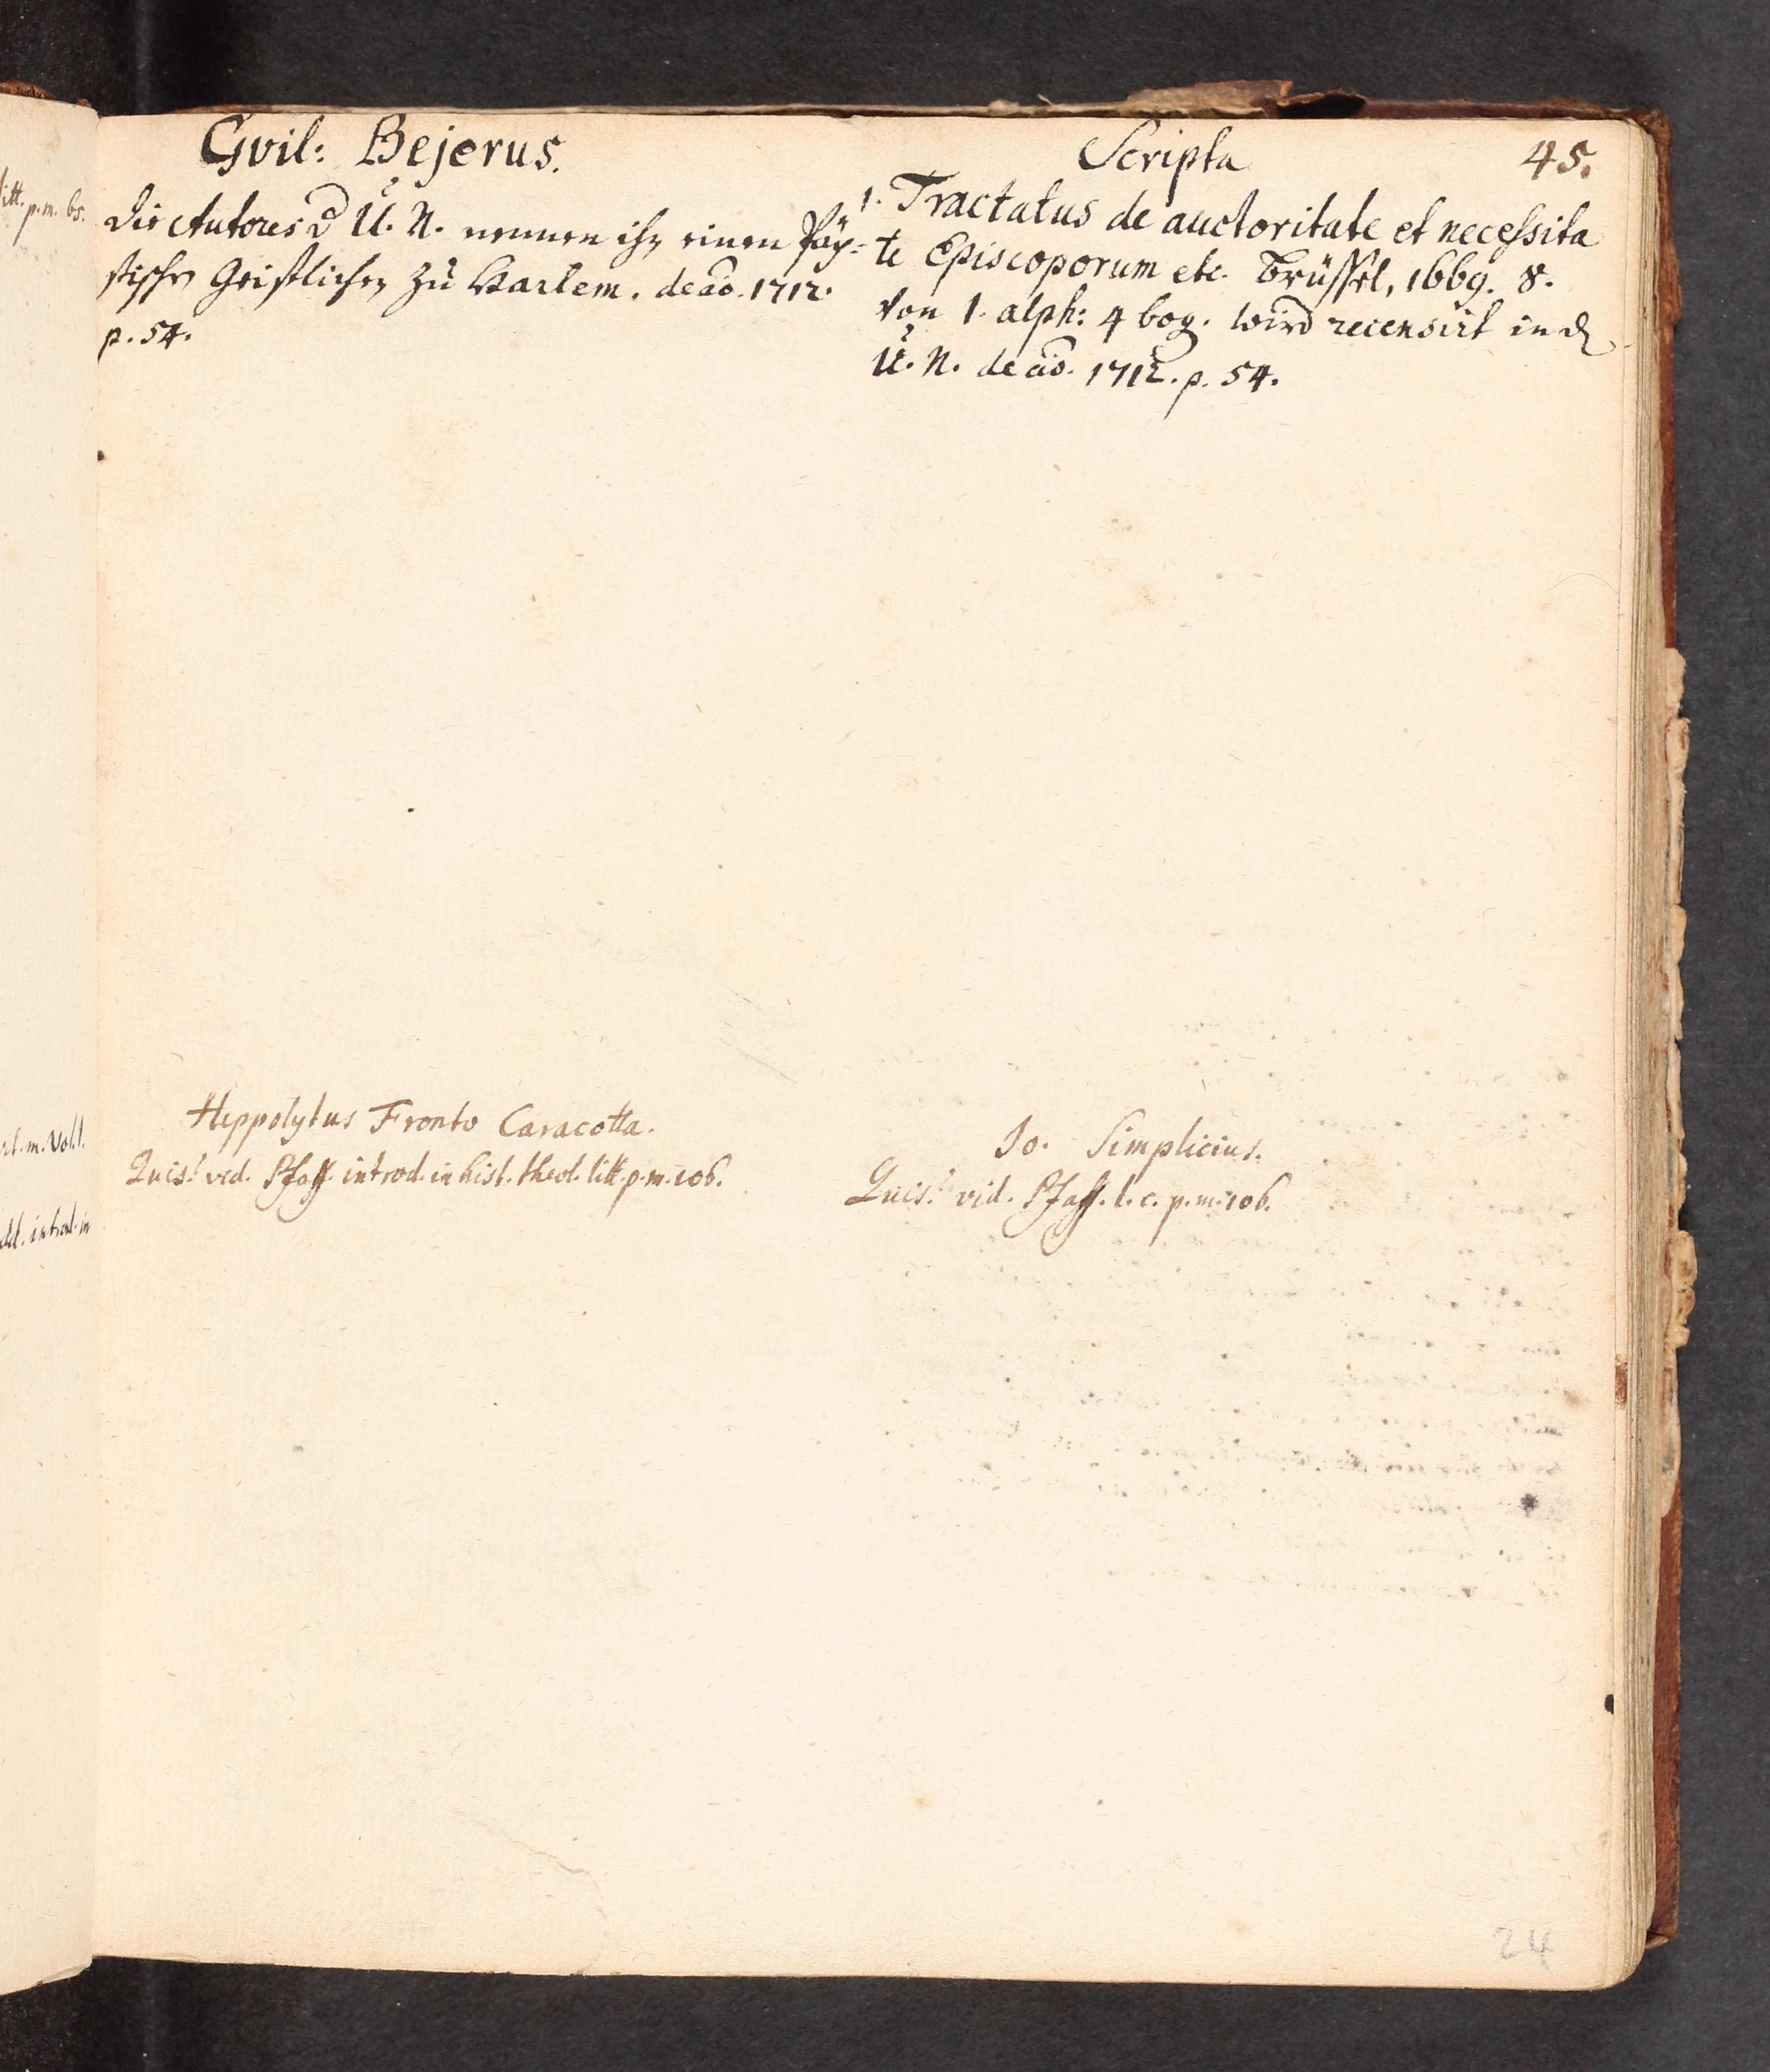 Gvil: Bejerus.
Die Autores d U. N. nennen ihn einen Päp-
stischen Geistlichen zu Harlem. de ao. 1712.
p. 54.
Scripta
45.
1. Tractatus de auctoritate et necessita
te Episcoporum etc. Brüssel, 1669. 8.
von 1. alph: 4 bog. wird recensirt in d
U. N. de ao. 1712. p. 54.
Heppolytus Fronto Caracotta.
Quis? vid. Pfaff. introd. in hist. theol. litt. p. m. 106.
Jo. Simplicius.
Quis? vid. Pfaff. l. c. p. m. 106.
24
itt. p. m. 65.
m. Vol. 1.
introd. in